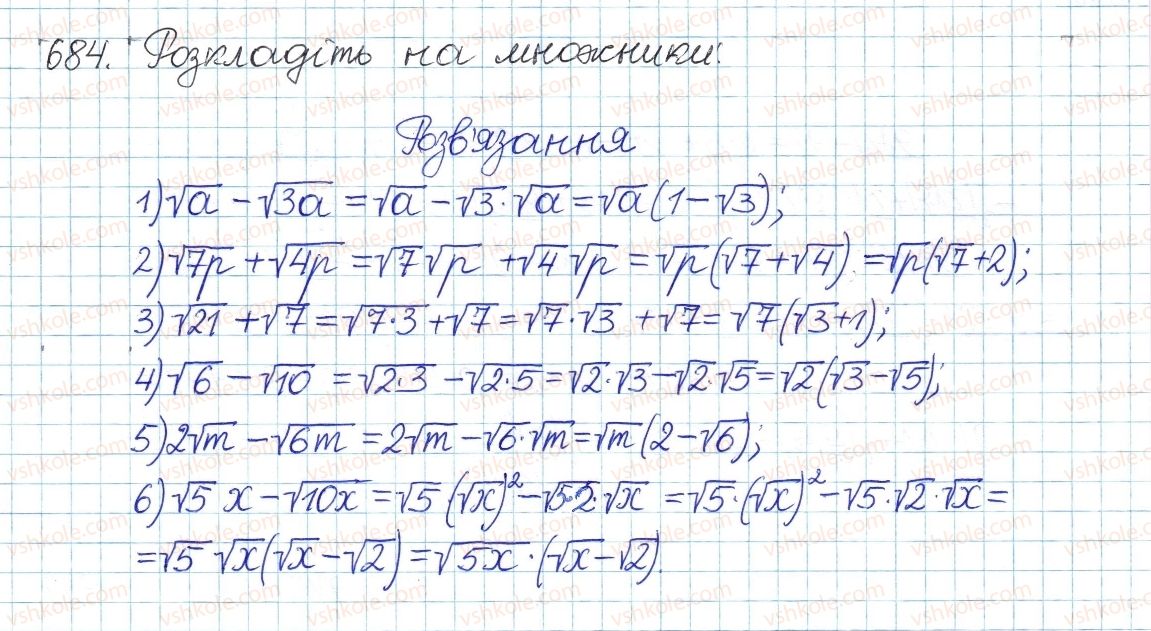 684. Розкладіть на множники:
Розв'язання
1) √a - √3a = √a - √3·√a = √a(1-√3);
2) √7p + √4p = √7√p + √4√p = √p(√7+√4) = √p(√7+2);
3) √21 + √7 = √7·3 + √7 = √7·√3 + √7 = √7(√3+1);
4) √6 - √10 = √2·3 - √2·5 = √2·√3 - √2·√5 = √2(√3-√5);
5) 2√m - √6m = 2√m - √6·√m = √m(2-√6);
6) √5 x - √10x = √5(√x)² - √5·2·√x = √5·(√x)² - √5·√2·√x =
= √5 √x(√x-√2) = √5x·(√x-√2).
vshkole.com